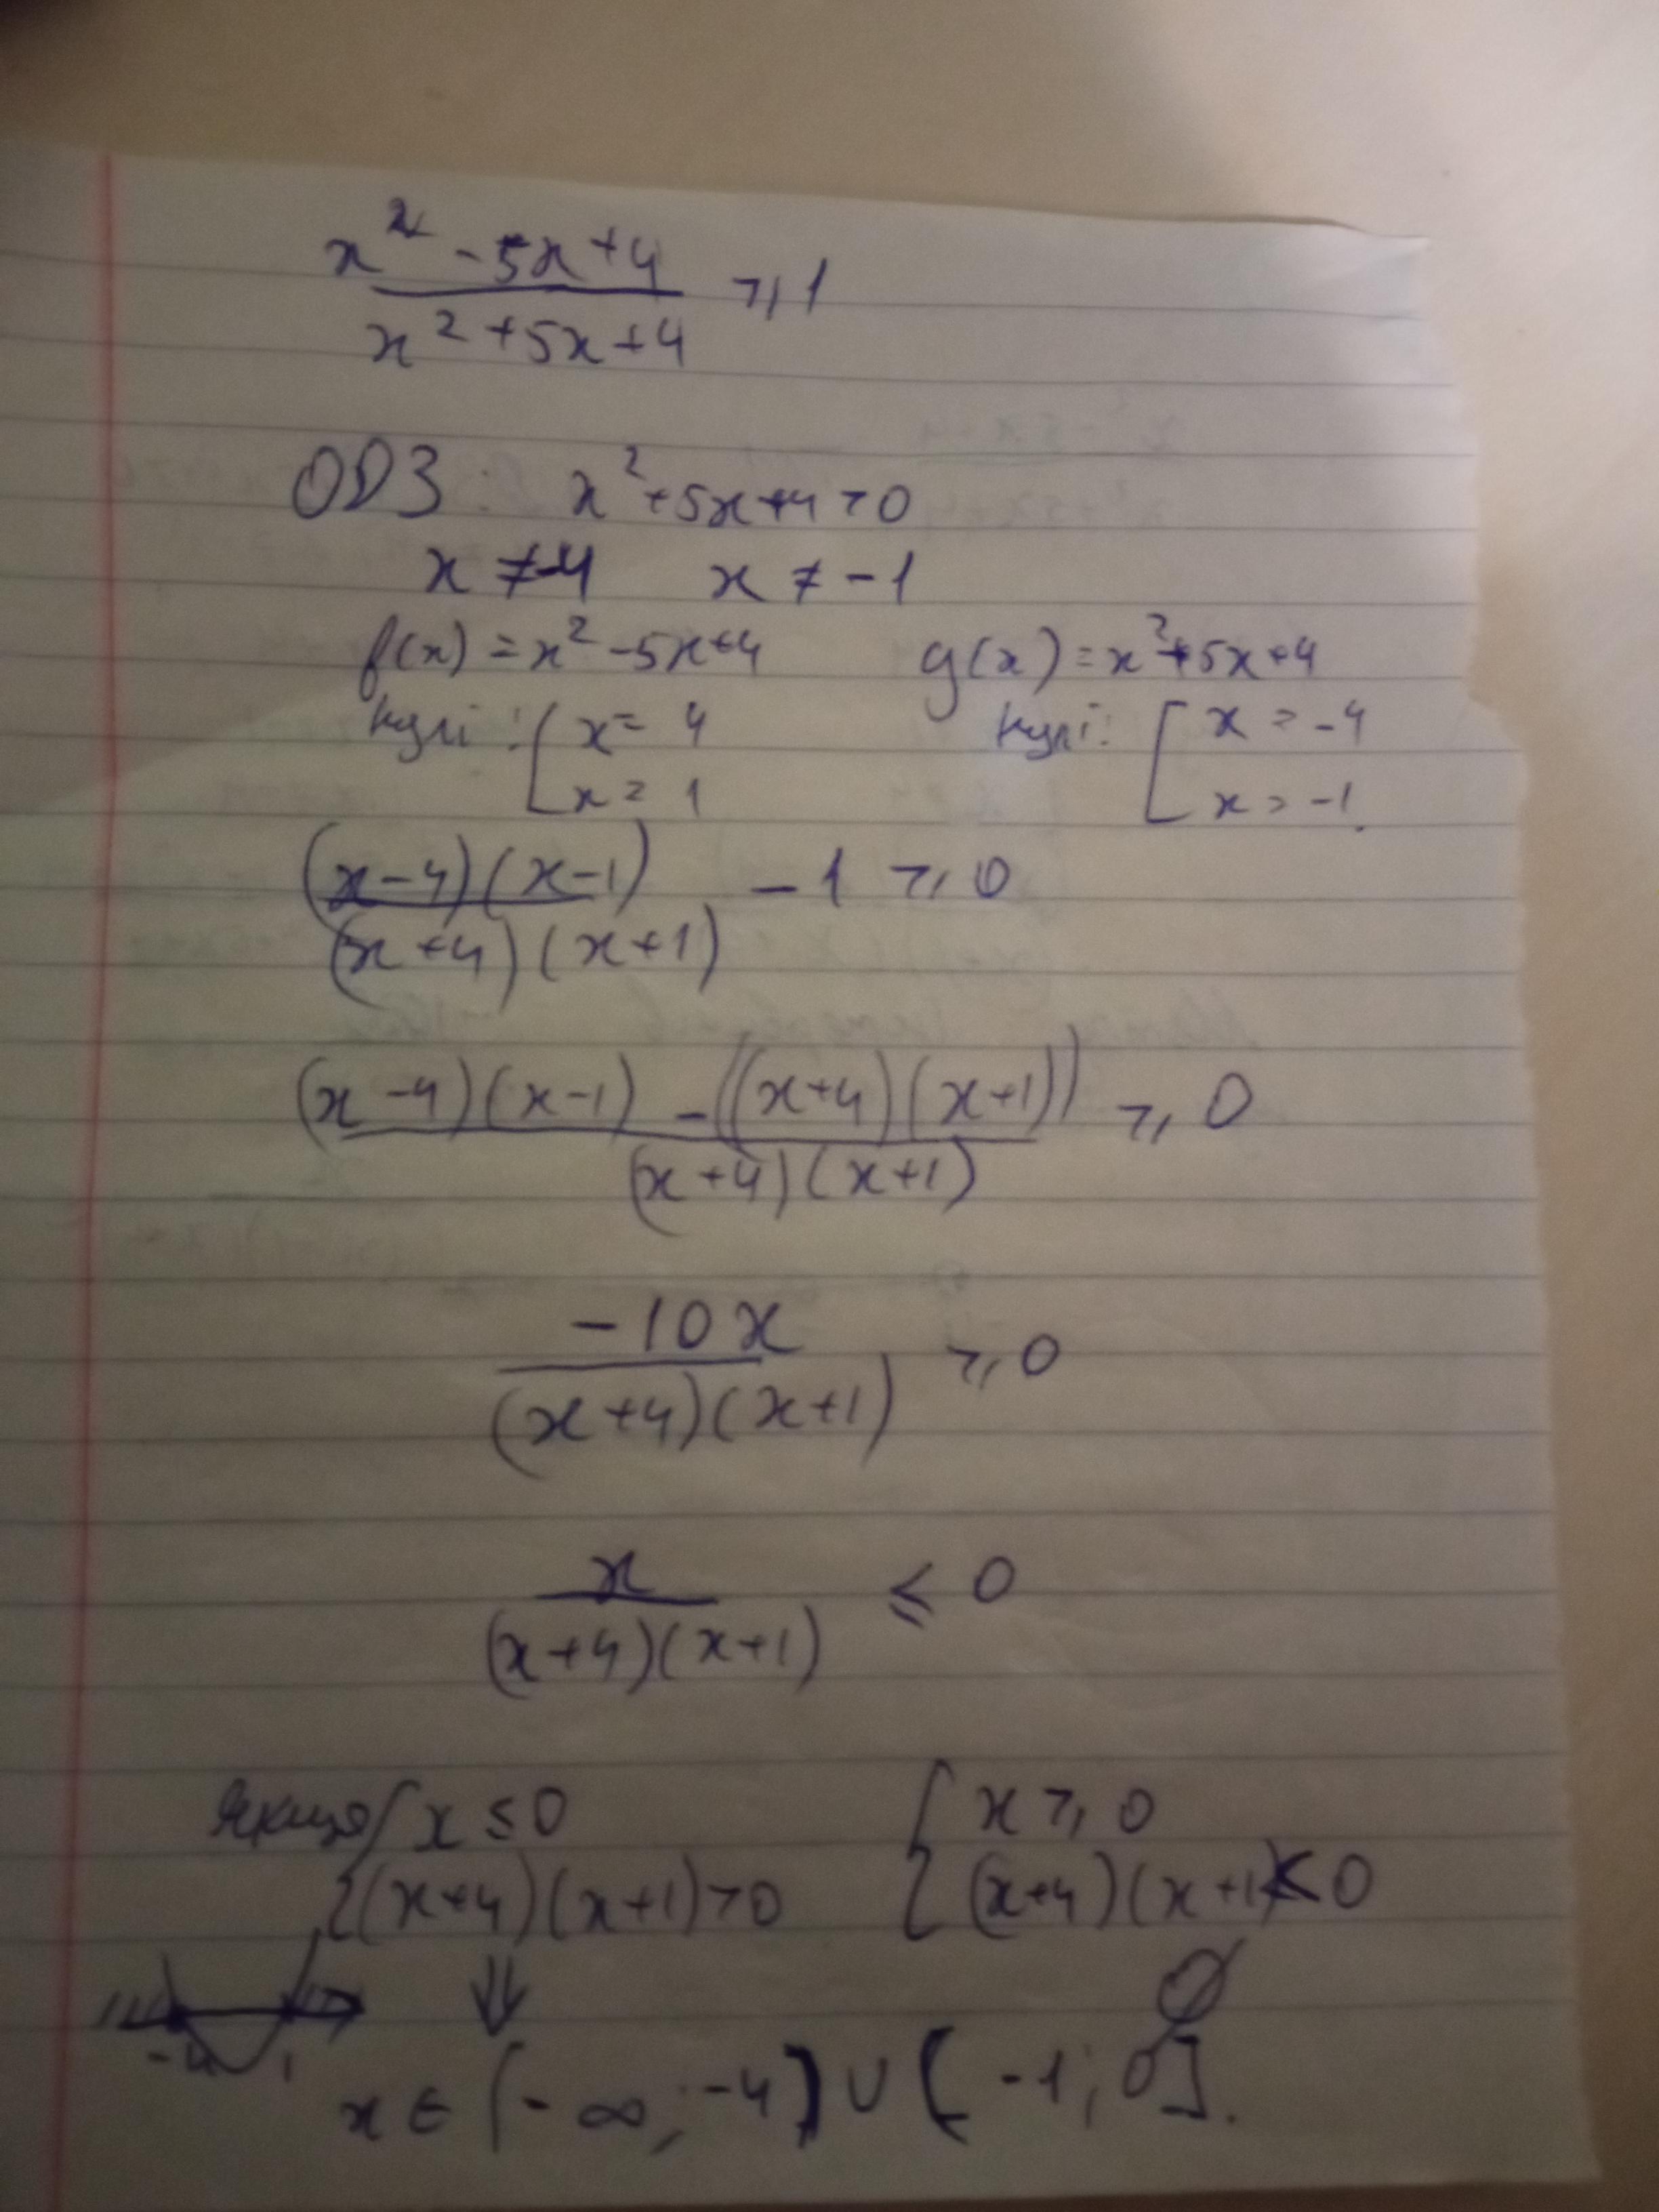 x² - 5x + 4 / x² + 5x + 4 ≥ 1
ОДЗ: x² + 5x + 4 ≠ 0
x ≠ -4 x ≠ -1
f(x) = x² - 5x + 4 g(x) = x² + 5x + 4
нулі: [ x = 4 нулі: [ x = -4
x = 1 x = -1.
(x-4)(x-1) / (x+4)(x+1) - 1 ≥ 0
(x-4)(x-1) - ((x+4)(x+1)) / (x+4)(x+1) ≥ 0
-10x / (x+4)(x+1) ≥ 0
x / (x+4)(x+1) ≤ 0
якщо { x ≤ 0 { x ≥ 0
(x+4)(x+1) > 0 (x+4)(x+1) < 0
⇓ ∅
-4 1
x ∈ (-∞; -4) ∪ (-1; 0].